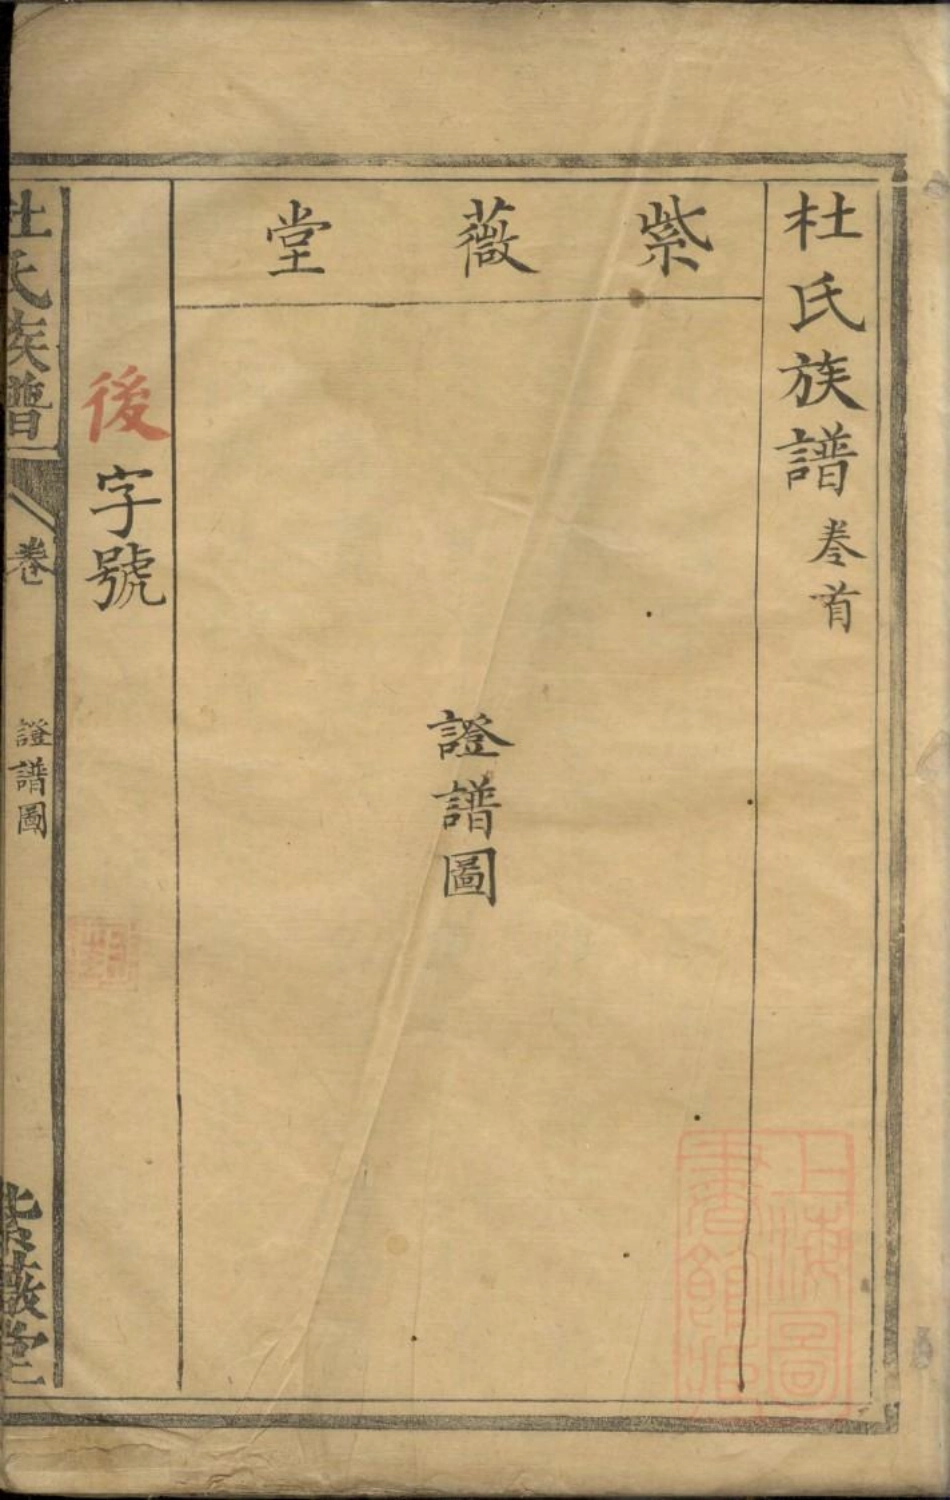 杜氏族譜 卷首
紫薇堂
證譜圖
後字號
杜氏族譜
卷
證譜圖
紫薇堂
上海圖
書館藏